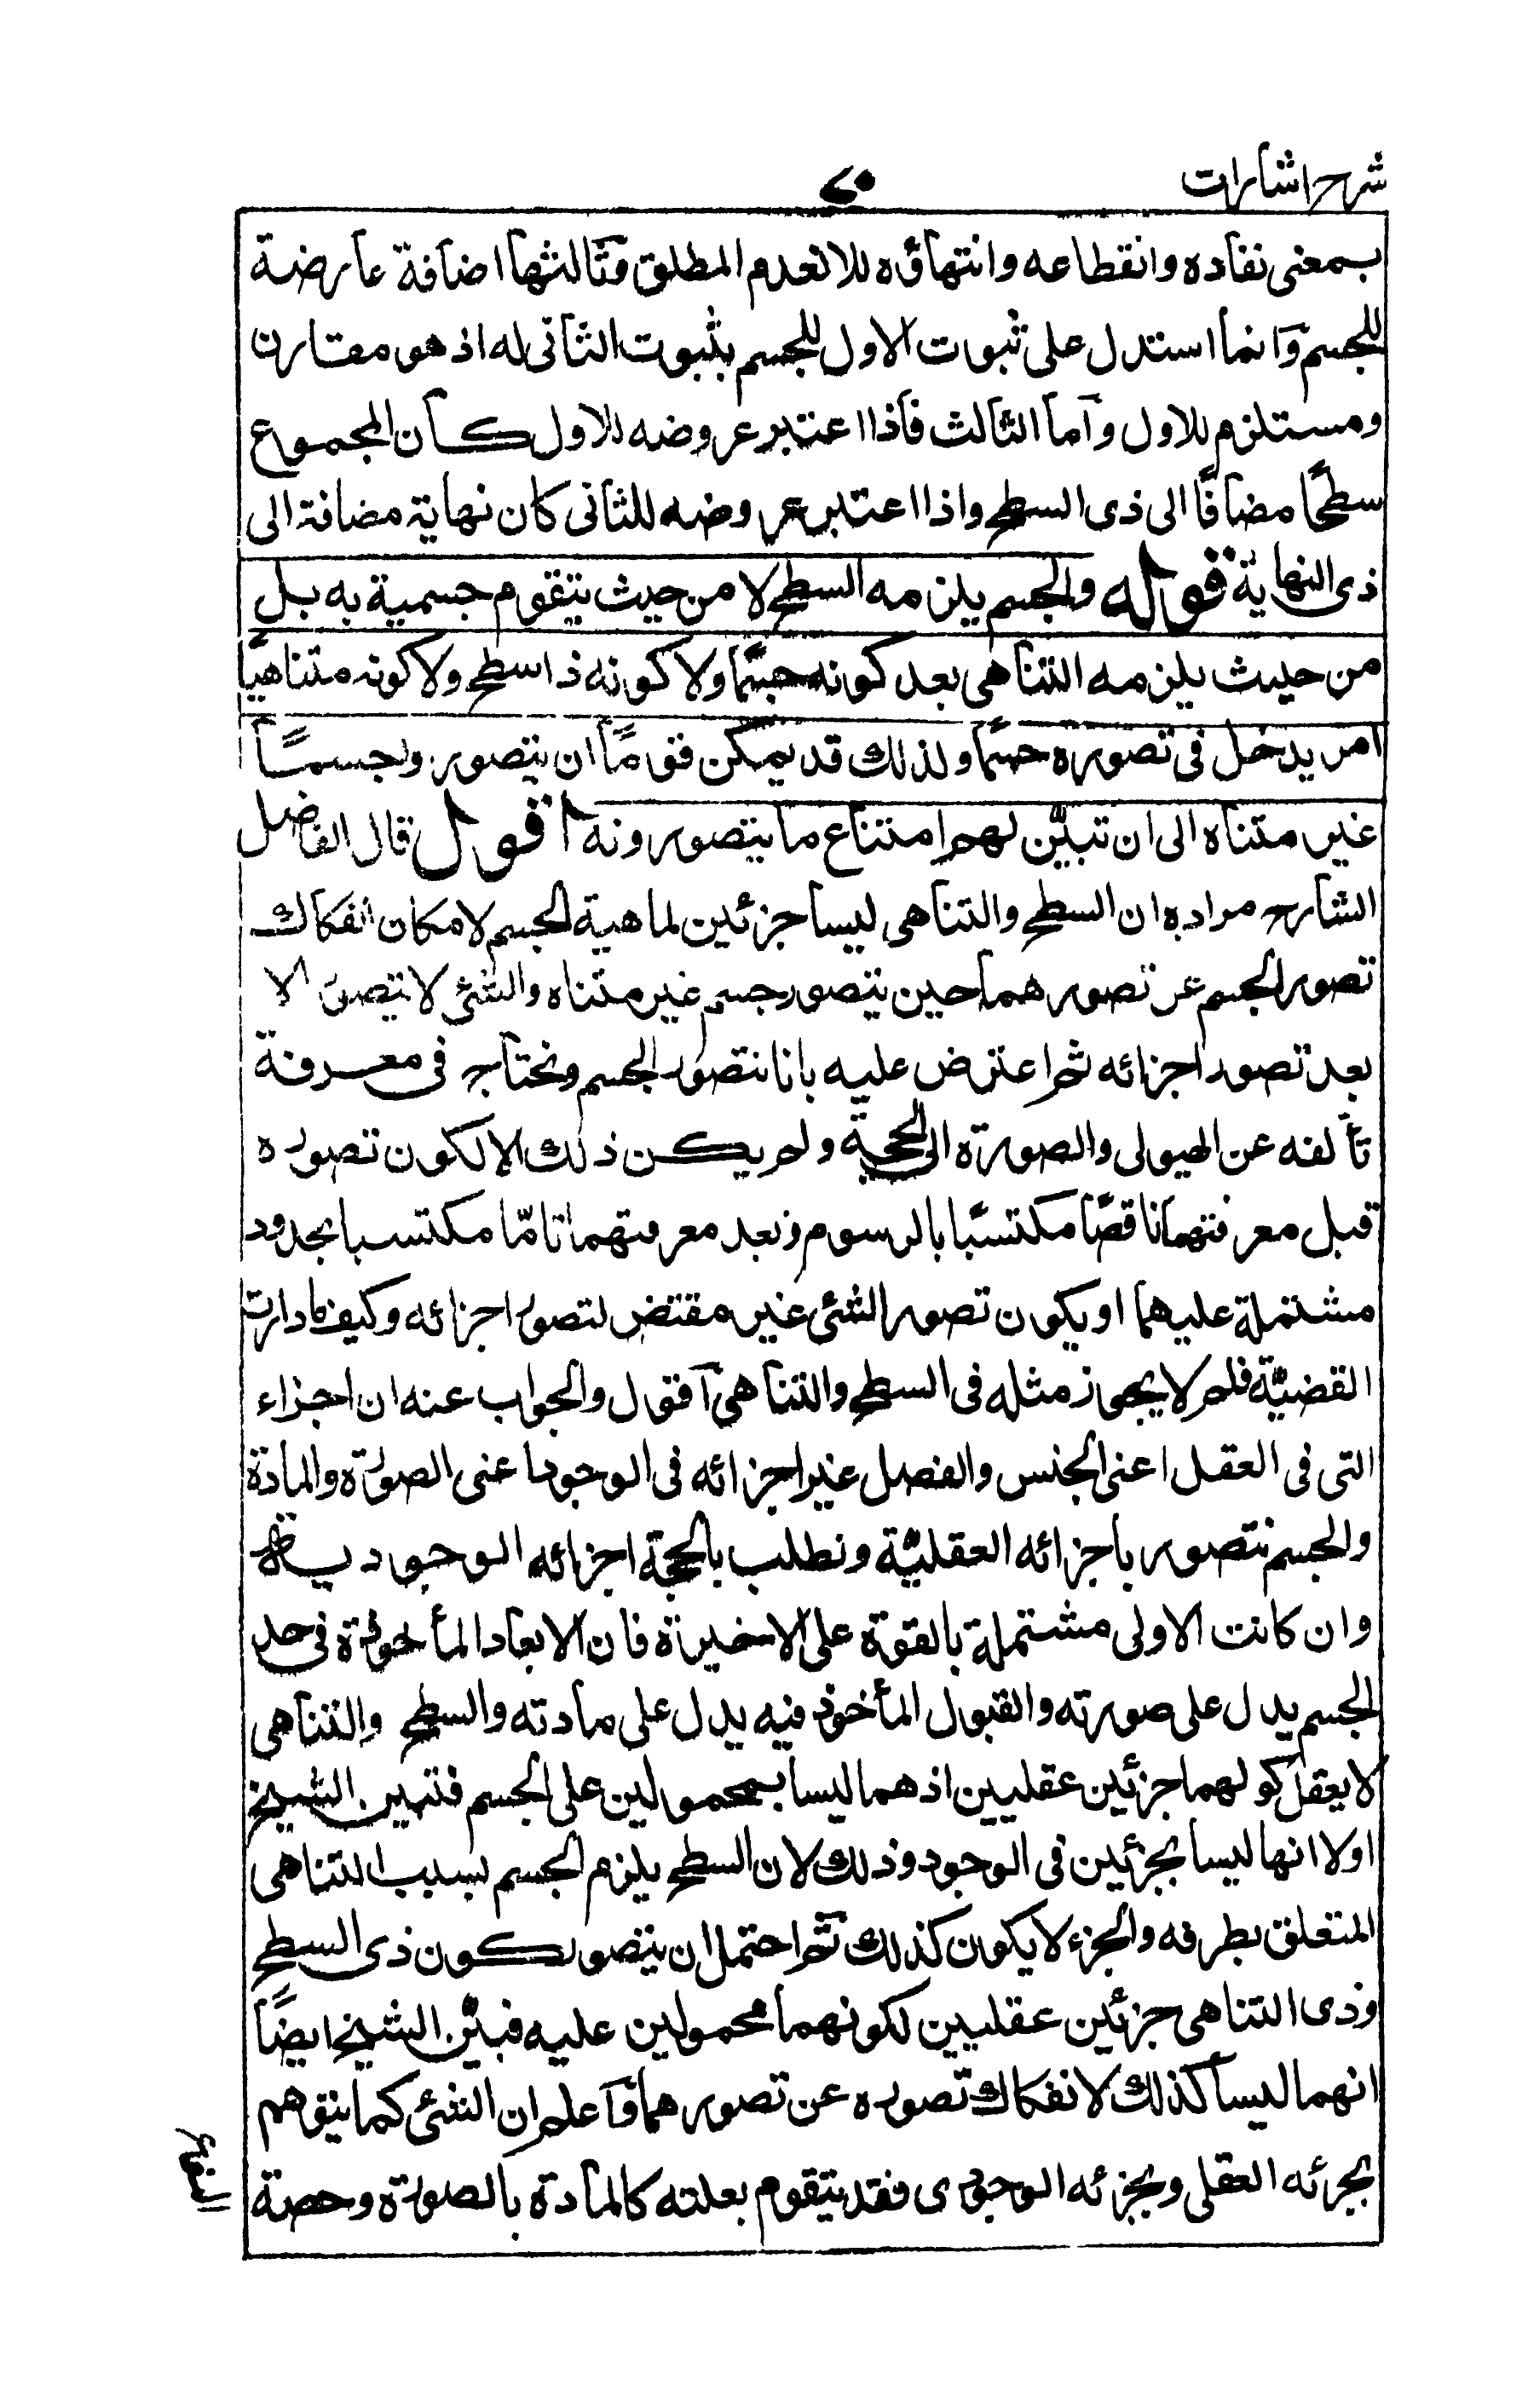 شرح اشارات
بمعنى نفاده وانقطاعه وانتهاؤه للا العدم المطلق وثالثها اضافة عارضة
للجسم وانما استدل على ثبوت الاول للجسم بثبوت الثانى له اذ هو مقارن
ومستلزم للاول واما الثالث فاذا اعتبر عروضه للاول كان المجموع
سطحًا مضافًا الى ذى السطح واذا اعتبر عروضه للثانى كان نهاية مضافة الى
ذى النهاية قوله والجسم يلزمه السطح لا من حيث يتقوم جسمية به بل
من حيث يلزمه التناهى بعد كونه جسمًا ولا كونه ذا سطح ولا كونه متناهيًا
امر يدخل فى تصوره جسمًا ولذلك قد يمكن قومًا ان يتصوروا جسمًا
غير متناه الى ان تبيّن لهم امتناع ما يتصورونه اقول قال الفاضل
الشارح مراده ان السطح والتناهى ليسا جزئين لماهية الجسم لامكان انفكاك
تصور الجسم عن تصورهما حين يتصور جسم غير متناه والشئ لا يتصور الا
بعد تصور اجزائه ثم اعترض عليه بانا نتصور الجسم ونحتاج فى معرفة
تألفه عن الهيولى والصورة الى الحجة ولم يكن ذلك الا لكون تصوره
قبل معرفتهما ناقصًا مكتسبًا بالرسوم وبعد معرفتهما تامّا مكتسبا بحدود
مشتملة عليهما او يكون تصور الشئ غير مقتض لتصور اجزائه وكيف ما دارت
القضيّة فلم لا يجوز مثله فى السطح والتناهى اقول والجواب عنه ان اجزاء
التى فى العقل اعنى الجنس والفصل غير اجزائه فى الوجود اعنى الصورة والمادة
والجسم نتصور باجزائه العقليّة ونطلب بالحجة اجزائه الوجودية
وان كانت الاولى مشتملة بالقوة على الاخيرة فان الابعاد المأخوذة فى حد
الجسم يدل على صورته والقبول المأخوذ فيه يدل على مادته والسطح والتناهى
لا يعقل كونهما جزئين عقليين اذ هما ليسا بمحمولين على الجسم فتبين الشيخ
اولا انها ليسا بجزئين فى الوجود وذلك لان السطح يلزم الجسم بسبب التناهى
المتعلق بطرفه والجزء لا يكون كذلك ثم احتمل ان يتصور كون ذى السطح
وذى التناهى جزئين عقليين لكونهما محمولين عليه فبيّن الشيخ ايضًا
انهما ليسا كذلك لانفكاك تصوره عن تصورهما واعلم ان الشئ كما يتوهم
بجزئه العقلى وبجزئه الوجودى فقد يتقوم بعلته كالمادة بالصورة وحصة